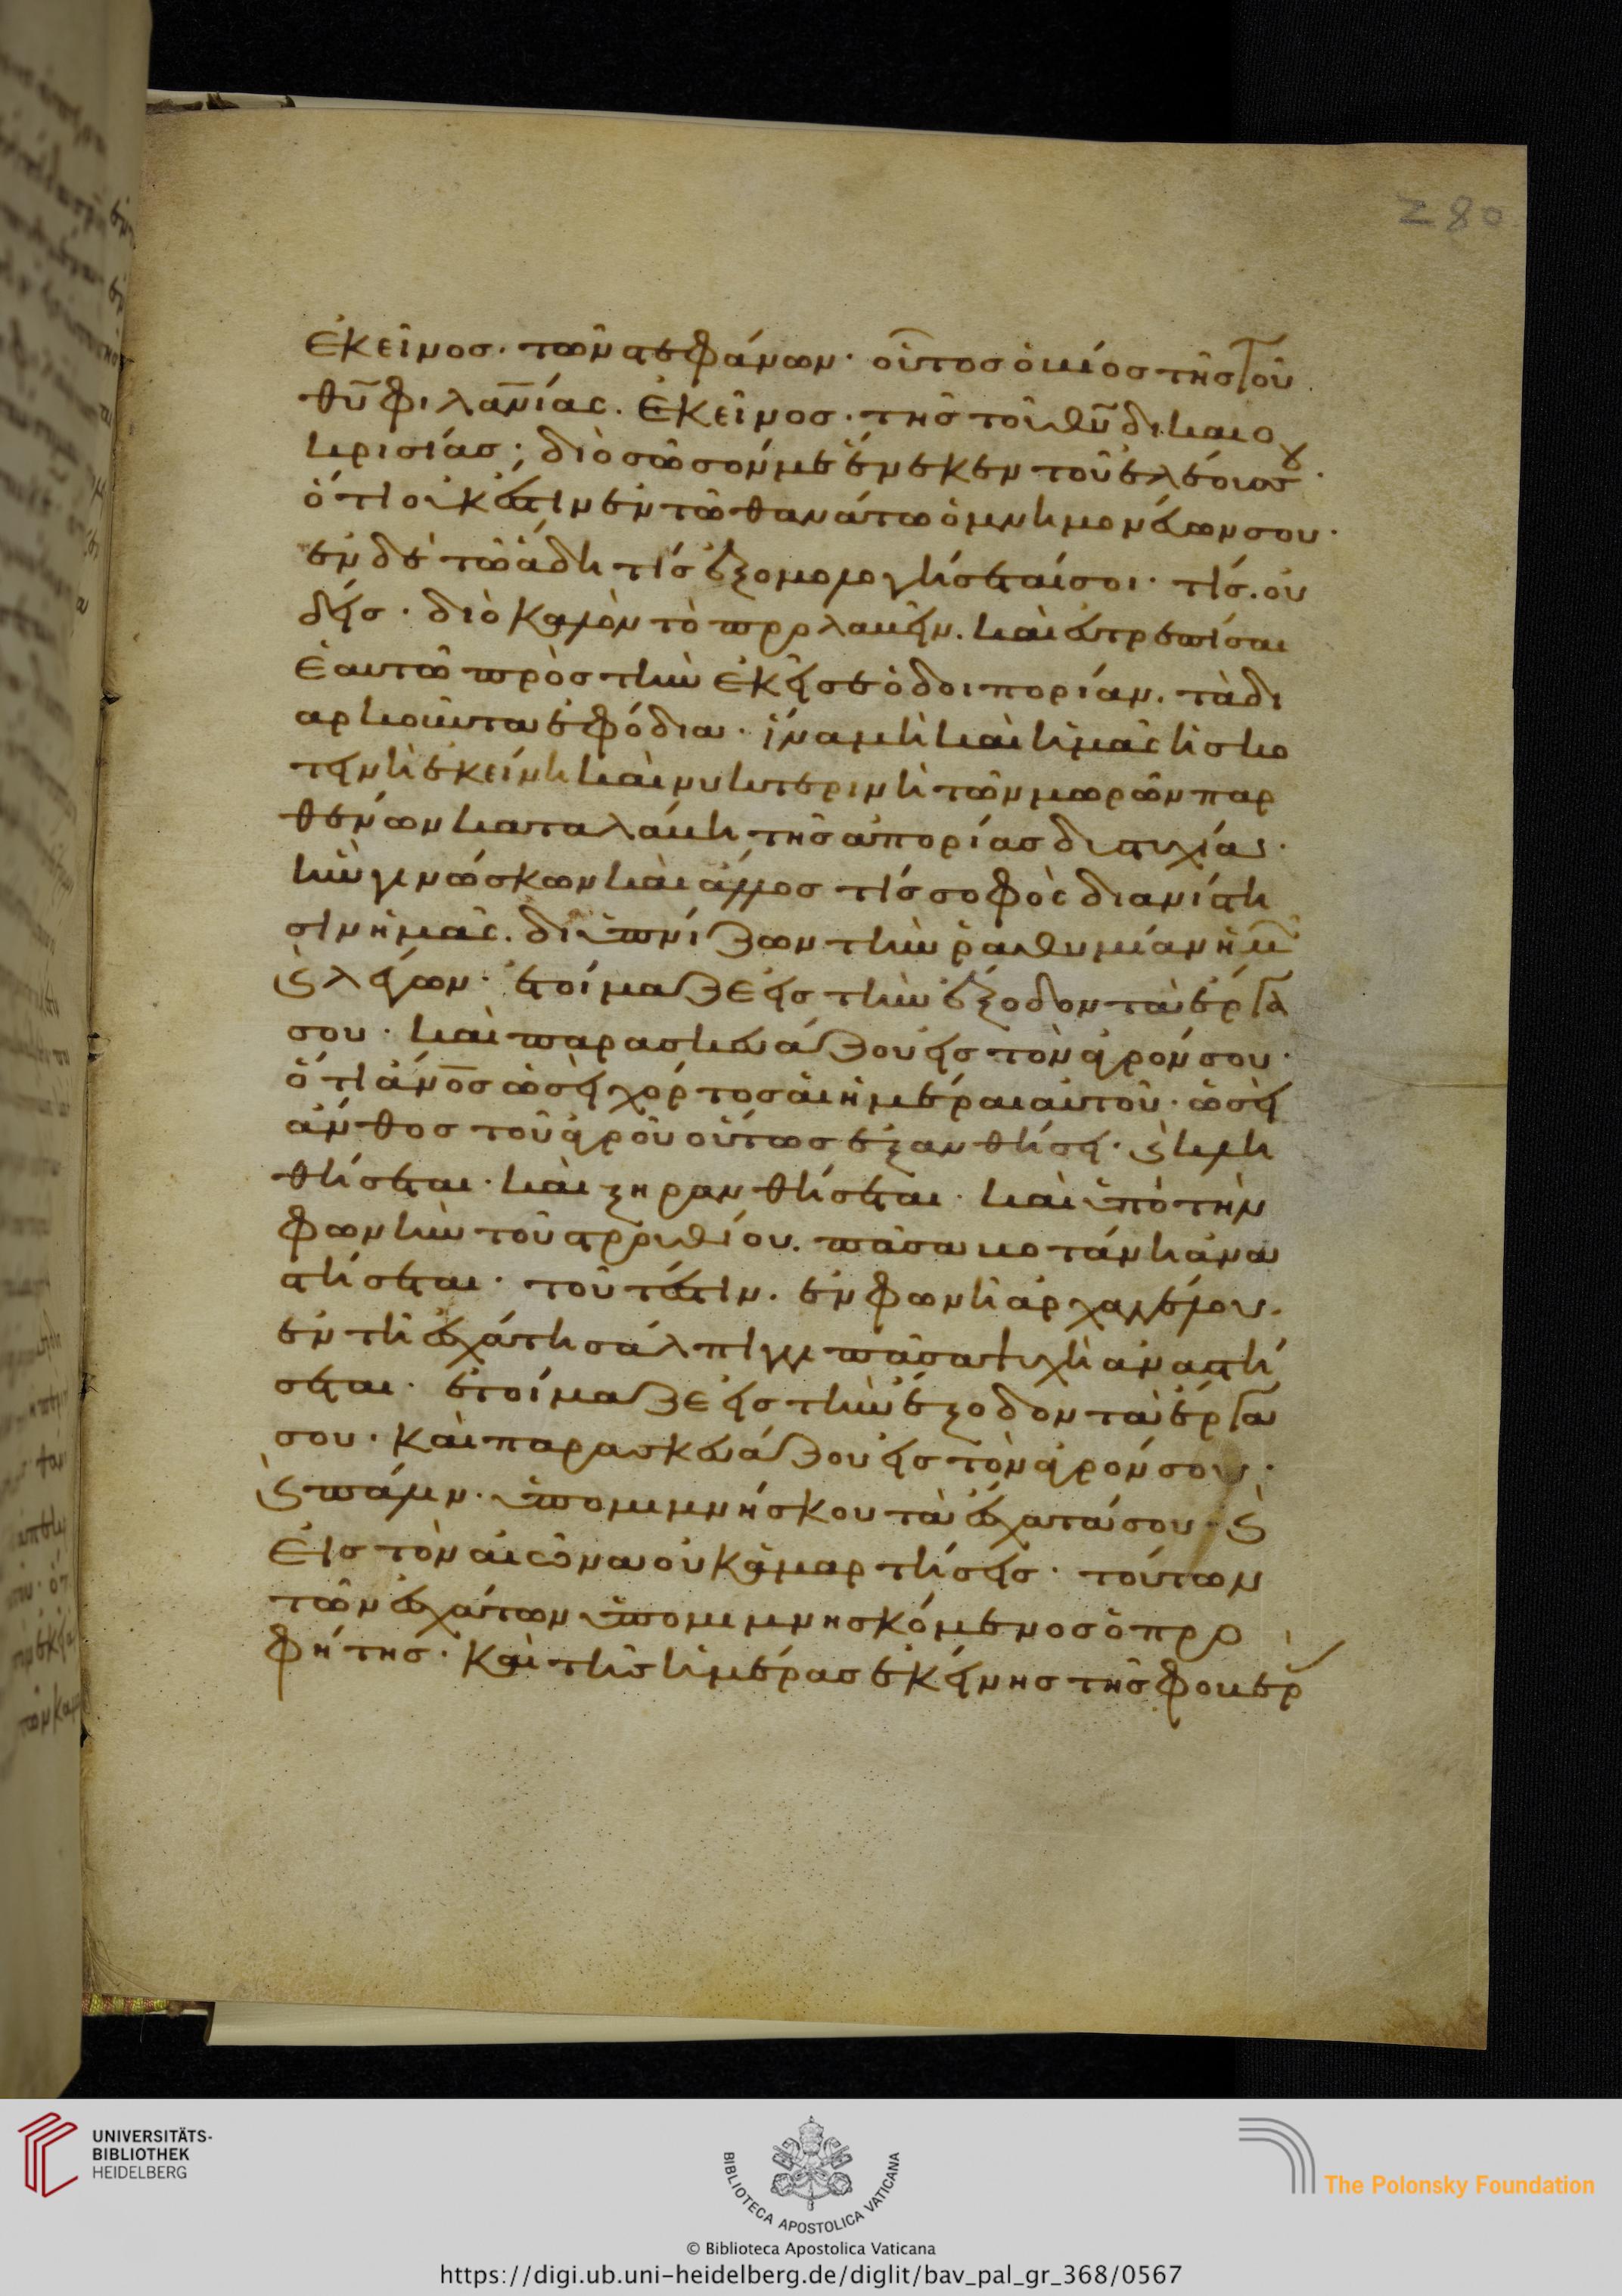 280
ἐκεῖνος· τῶν στεφάνων· οὗτος ὁ βίος τῆς τοῦ
θῦ φιλανίας. ἐκεῖνος· τῆς τοῦ θῦ δικαιο
κρισίας; διὸ σῶσόν με ἕνεκεν τοῦ ἐλέους σου·
ὅτι οὐκ ἔστιν ἐν τῶ θανάτω ὁ μνημονεύων σου·
ἐν δὲ τῶ ἅδη τίς ἐξομολογήσεταί σοι· τίς. οὐ
δείς· διὸ καλὸν τὸ προλαβεῖν. καὶ εὐτρεπίσαι
ἑαυτῶ πρὸς τὴν ἐκεῖσε ὁδοιπορίαν. τὰ δι
αρκοῦντα ἐφόδια· ἵνα μὴ καὶ ἡμᾶς ἡ σκο
τεινὴ ἐκείνη καὶ νυκτερινὴ τῶν μωρῶν παρ
θένων καταλάβη τῆς ἀπορίας δυστυχία·
ἣν γινώσκων καὶ ἄλλος τίς σοφὸς διανίστη
σιν ἡμᾶς. διυπνίζων τὴν ῥαθυμίαν ἡμῶν
καὶ λέγων· ἑτοίμαζε εἰς τὴν ἔξοδον τὰ ἔργα
σου· καὶ παρασκευάζου εἰς τὸν ἀγρόν σου·
ὅτι ἄνος ὡσεὶ χόρτος αἱ ἡμέραι αὐτοῦ· ὡσεὶ
ἄνθος τοῦ ἀγροῦ οὕτως ἐξανθήσει· καὶ κλη
θήσεται· καὶ ξηρανθήσεται· καὶ ὑπὸ τὴν
φωνὴν τοῦ στρουθίου. πᾶσα βοτάνη ἀνα
στήσεται· τουτέστιν. ἐν φωνῆ ἀρχαγγέλου.
ἐν τῆ ἐσχάτη σάλπιγγι πᾶσα ψυχὴ ἀναστή
σεται· ἑτοίμαζε εἰς τὴν ἔξοδον τὰ ἔργα
σου· καὶ παρασκευάζου εἰς τὸν ἀγρόν σου·
καὶ πάλιν. ὑπομιμνήσκου τὰ ἔσχατά σου· καὶ
εἰς τὸν αἰῶνα οὐκ ἁμαρτήσεις· τούτων
τῶν ἐσχάτων ὑπομιμνησκόμενος ὁ προ
φήτης· καὶ τῆς ἡμέρας ἐκείνης τῆς φοβερ
UNIVERSITÄTS-
BIBLIOTHEK
HEIDELBERG
BIBLIOTECA APOSTOLICA VATICANA
The Polonsky Foundation
© Biblioteca Apostolica Vaticana
https://digi.ub.uni-heidelberg.de/diglit/bav_pal_gr_368/0567